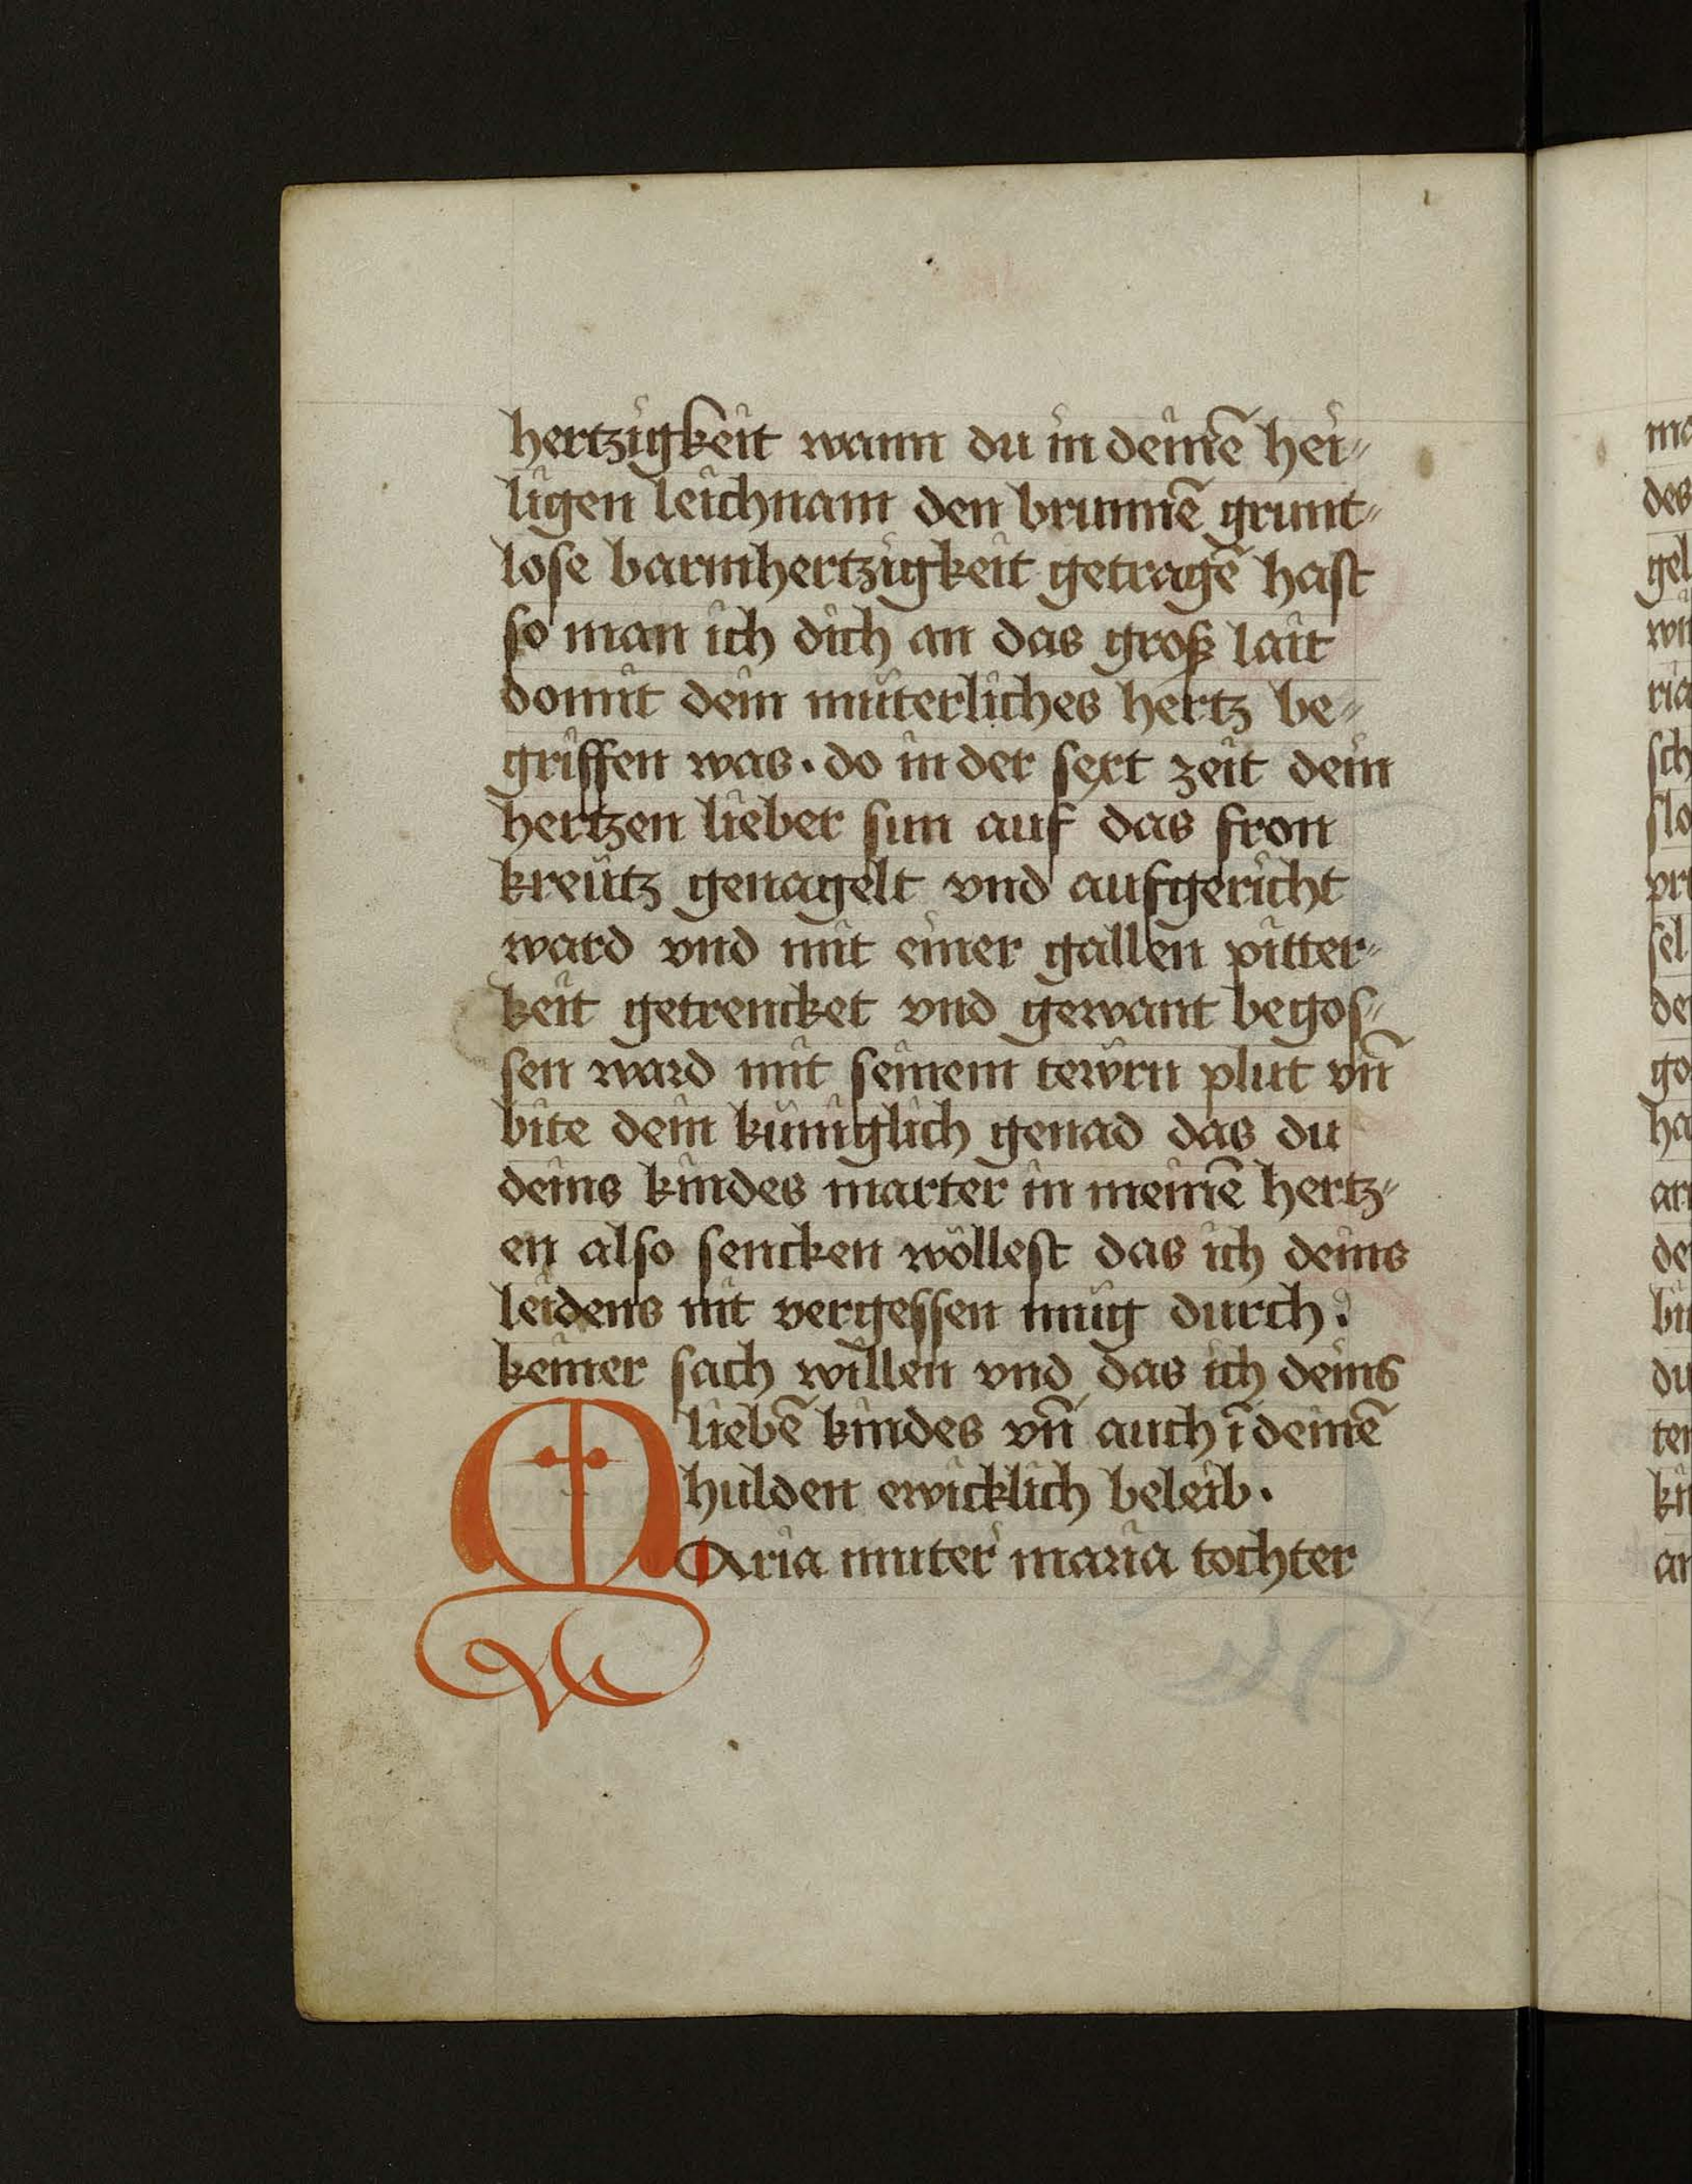 hertzigkeit wann du in deinē hei⸗
ligen leichnam den brunnē grunt⸗
lose barmhertzigkeit getragē hast
so man ich dich an das groß lait
domit dein müterliches hertz be⸗
griffen was · do in der sext zeit dein
hertzen lieber sun auf das fron
kreütz genagelt vnd aufgericht
ward vnd mit einer gallen pitter⸗
keit getrencket vnd gewant begos⸗
sen ward mit seinem tewrn plut vn̄
bite dein küniglich genad das du
deins kindes marter in meinē hertz⸗
en also sencken wöllest das ich deins
leidens nit vergessen müg durch
keiner sach willen vnd das ich deins
liebē kindes vn̄ auch ī deinē
hulden ewicklich beleib ·
MAria muter maria tochter